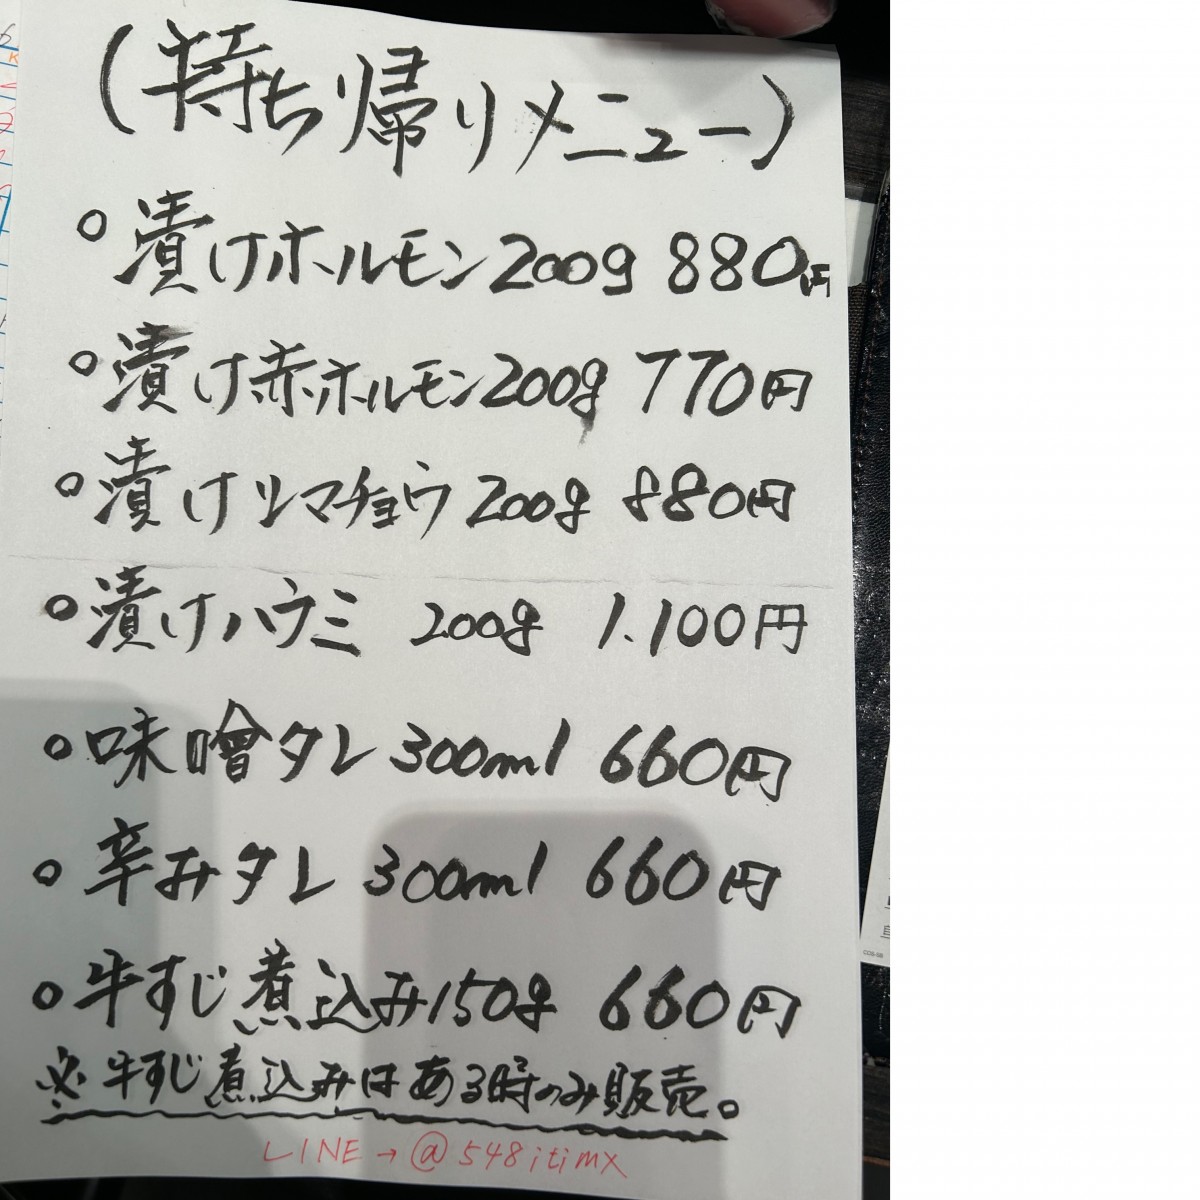 (持ち帰りメニュー)
○漬けホルモン200g 880円
○漬け赤ホルモン200g 770円
○漬けシマチョウ200g 880円
○漬けハラミ 200g 1.100円
○味噌タレ 300ml 660円
○辛みタレ 300ml 660円
○牛すじ煮込み150g 660円
※牛すじ煮込みはある時のみ販売。
LINE→@548itimx